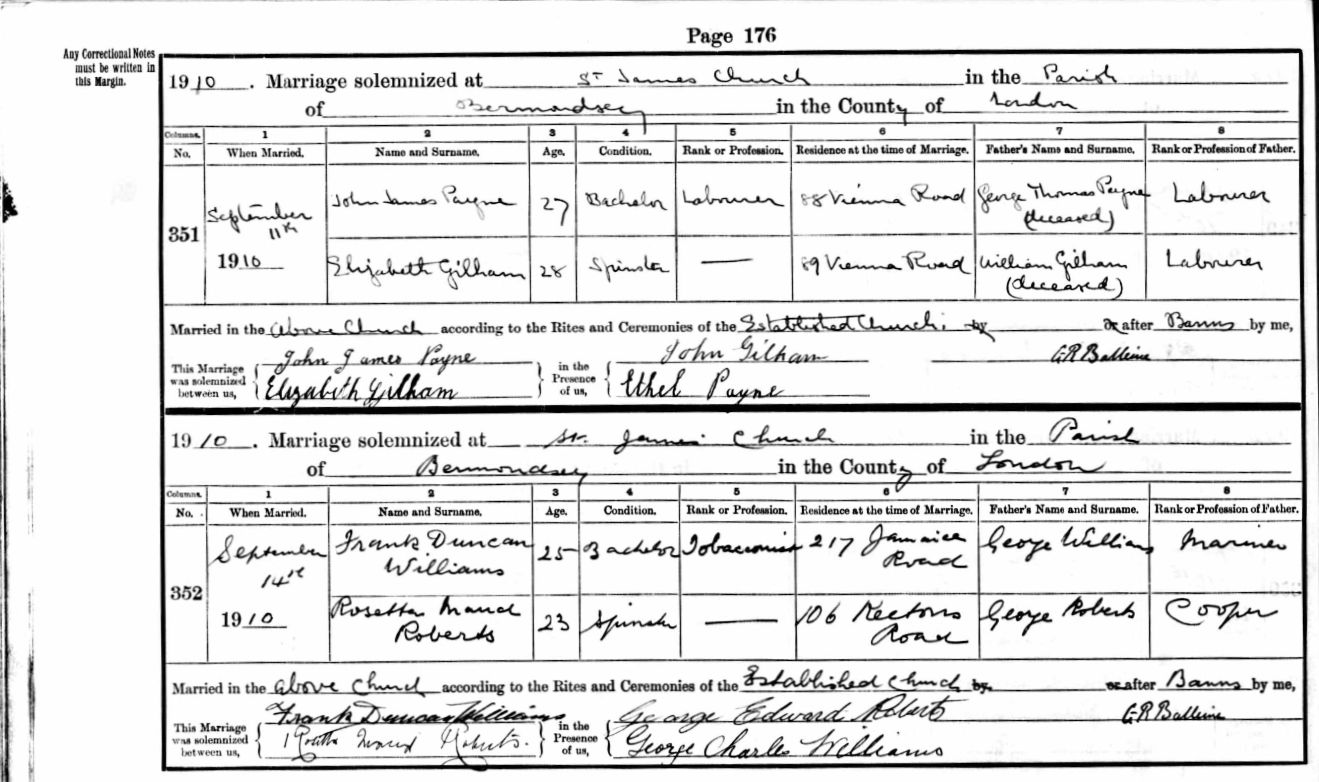 Page 176
Any Correctional Notes
must be written in
this Margin.
1910. Marriage solemnized at St James Church in the Parish
of Bermondsey in the County of London
Columns. 1 2 3 4 5 6 7 8
No. When Married. Name and Surname. Age. Condition. Rank or Profession. Residence at the time of Marriage. Father's Name and Surname. Rank or Profession of Father.
351 September 11th 1910
John James Payne 27 Bachelor Labourer 88 Vienna Road George Thomas Payne (deceased) Labourer
Elizabeth Gilham 28 Spinster — 89 Vienna Road William Gilham (deceased) Labourer
Married in the above Church according to the Rites and Ceremonies of the Established Church. by or after Banns by me,
This Marriage was solemnized between us, John James Payne Elizabeth Gilham in the Presence of us, John Gilham Ethel Payne G.R Balleine
1910. Marriage solemnized at St. James' Church in the Parish
of Bermondsey in the County of London
Columns. 1 2 3 4 5 6 7 8
No. When Married. Name and Surname. Age. Condition. Rank or Profession. Residence at the time of Marriage. Father's Name and Surname. Rank or Profession of Father.
352 September 14th 1910
Frank Duncan Williams 25 Bachelor Tobacconist 217 Jamaica Road George Williams Mariner
Rosetta Maud Roberts 23 Spinster — 106 Keetons Road George Roberts Cooper
Married in the above Church according to the Rites and Ceremonies of the Established Church by or after Banns by me,
This Marriage was solemnized between us, Frank Duncan Williams Maud Roberts. in the Presence of us, George Edward Roberts George Charles Williams G.R Balleine